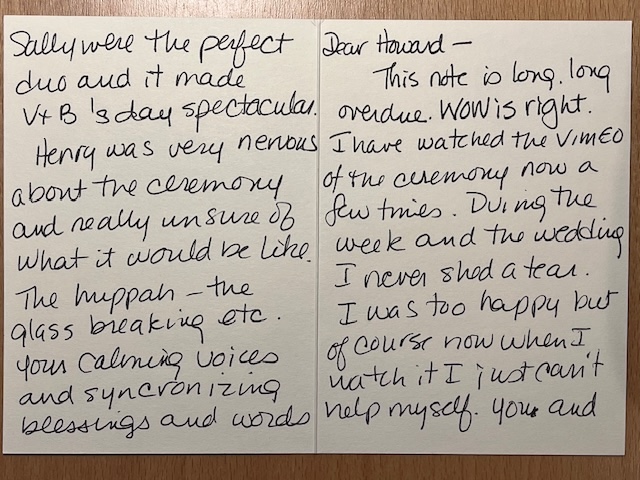 Dear Howard —
This note is long. long
overdue. WOW is right.
I have watched the VIMEO
of the ceremony now a
few times. During the
week and the wedding
I never shed a tear.
I was too happy but
of course now when I
watch it I just can't
help myself. you and
Sally were the perfect
duo and it made
V+B 's day spectacular.
Henry was very nervous
about the ceremony
and really unsure of
what it would be like.
The huppah — the
glass breaking etc.
your calming voices
and syncronizing
blessings and words